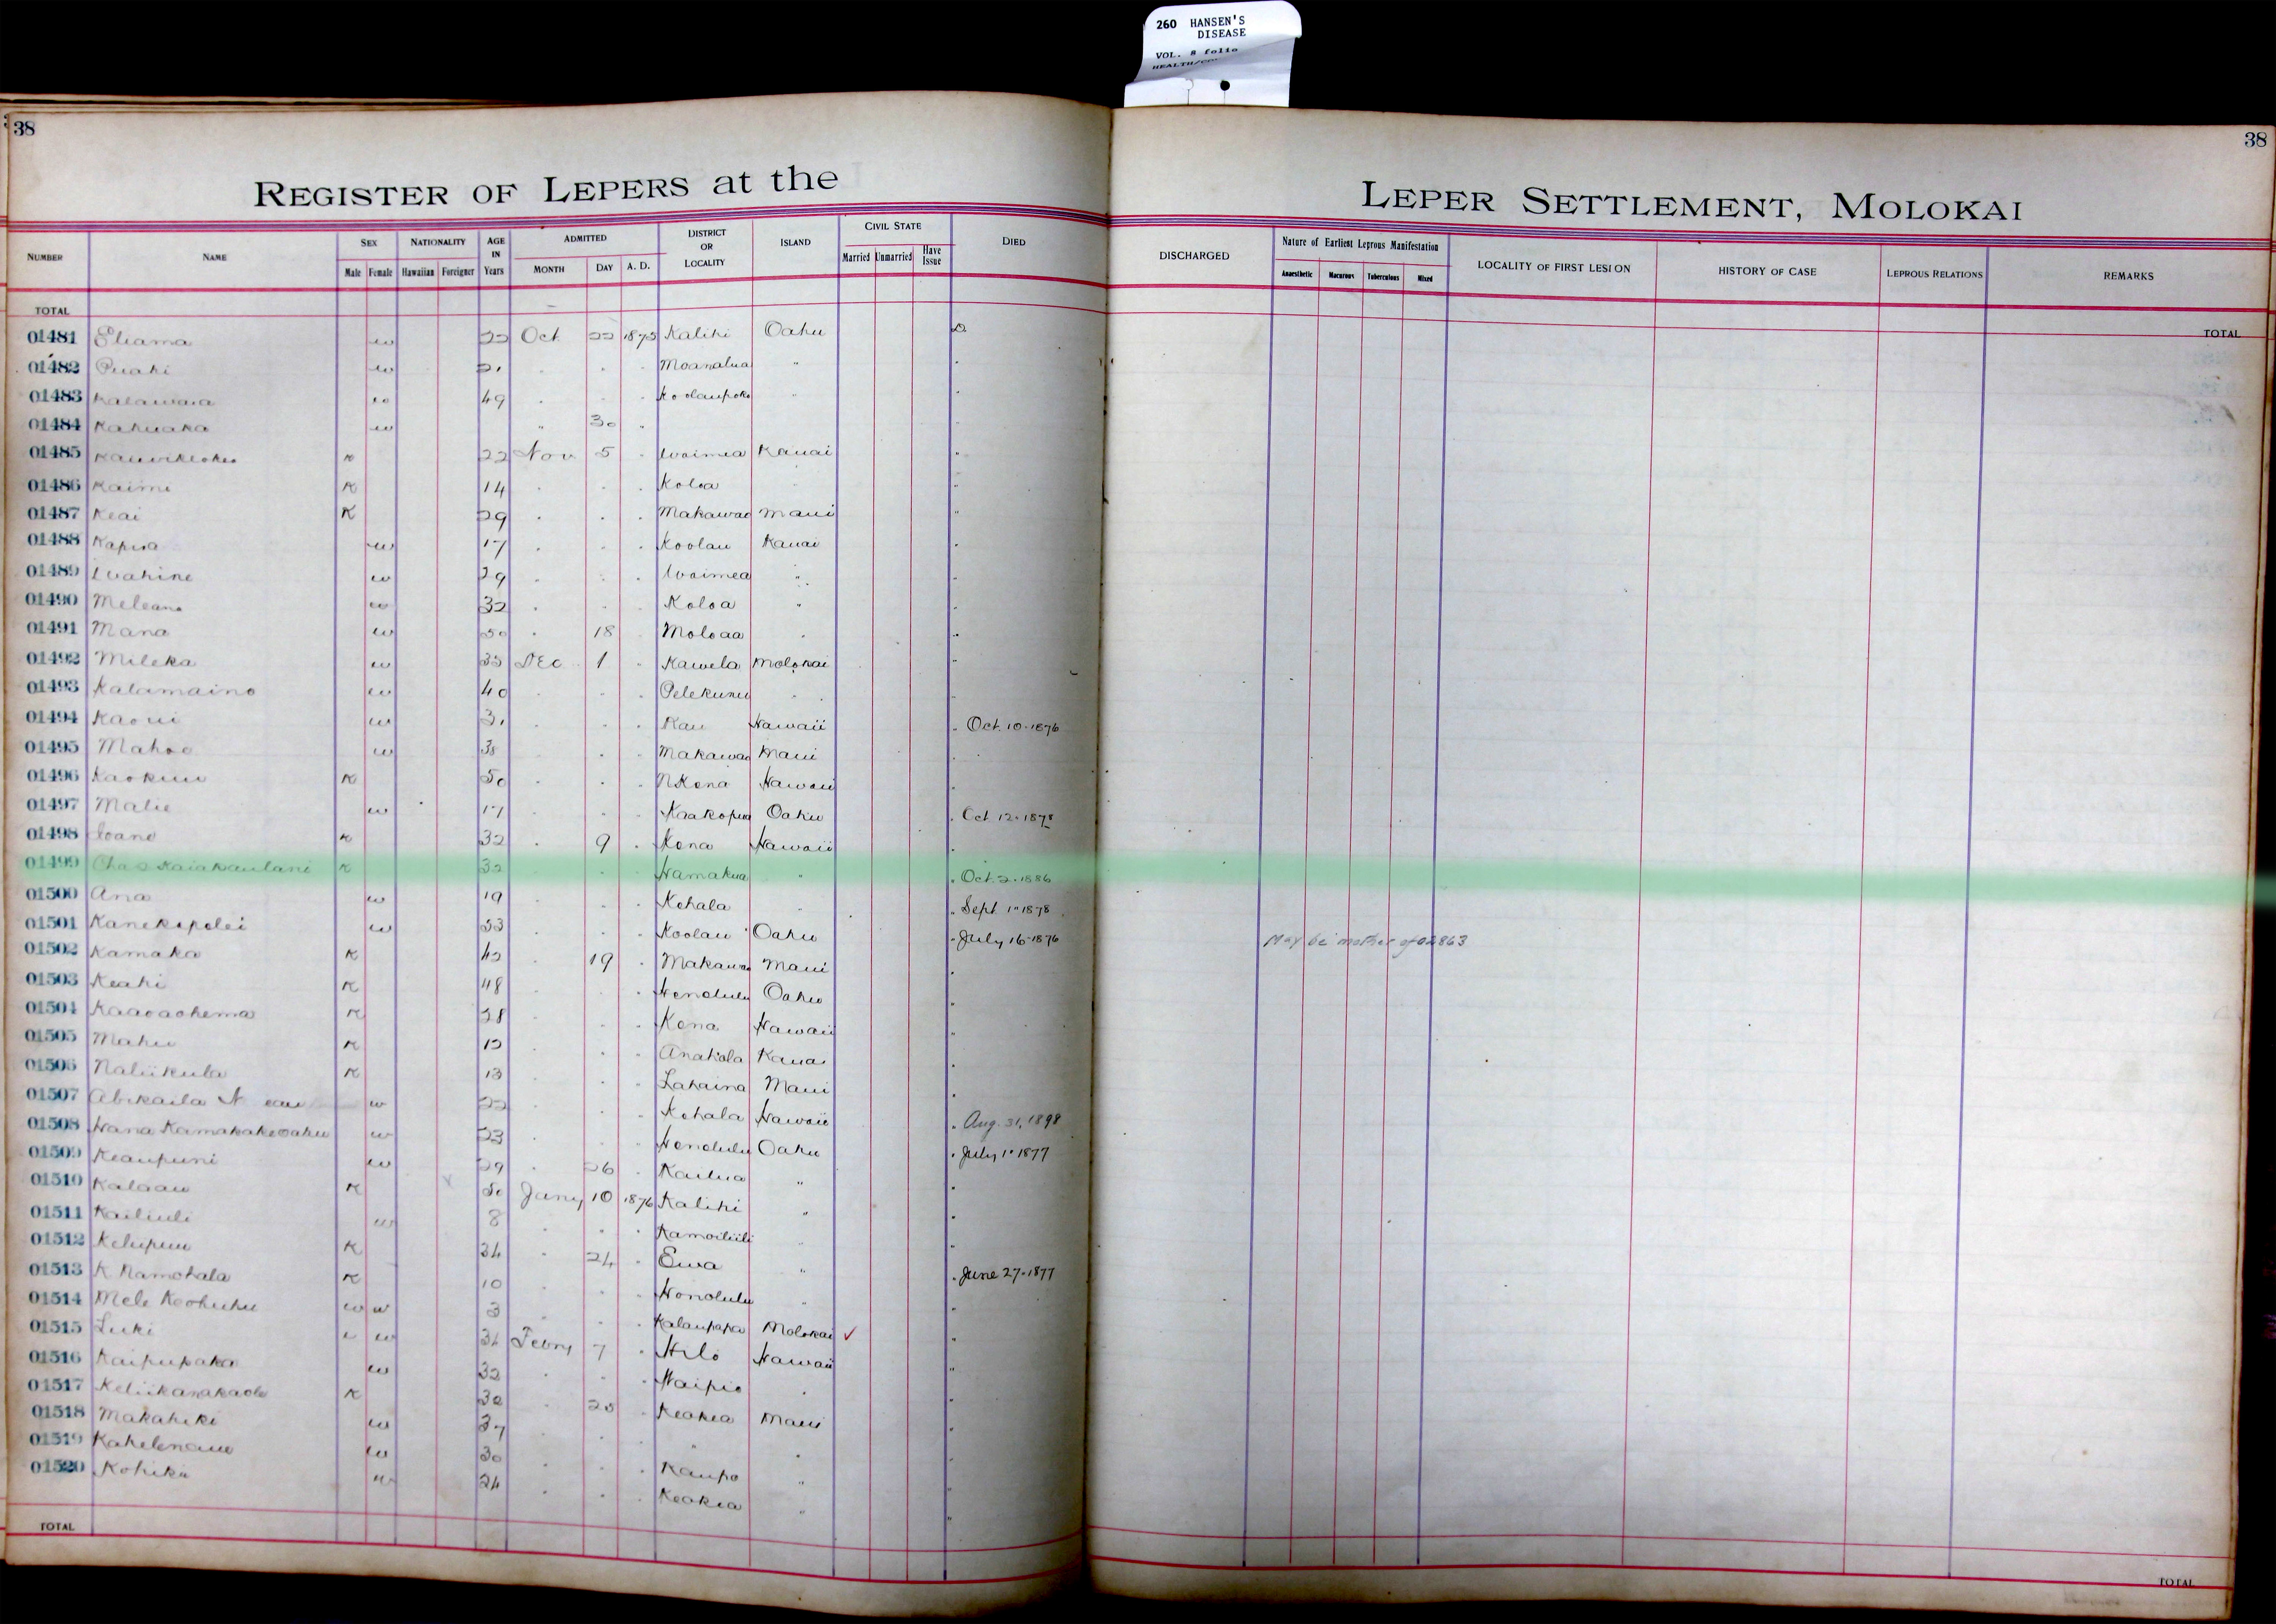 260 HANSEN'S
DISEASE
VOL. 8 folio
38
38
REGISTER OF LEPERS at the LEPER SETTLEMENT, MOLOKAI
NUMBER NAME SEX NATIONALITY AGE IN Years ADMITTED DISTRICT OR LOCALITY ISLAND CIVIL STATE DIED DISCHARGED Nature of Earliest Leprous Manifestation LOCALITY OF FIRST LESION HISTORY OF CASE LEPROUS RELATIONS REMARKS
Male Female Hawaiian Foreigner MONTH DAY A. D. Married Unmarried Have Issue Anaesthetic Macurous Tuberculous Mixed
TOTAL TOTAL
01481 Eliama w 22 Oct 22 1875 Kalihi Oahu D
01482 Puahi w 21 " " " Moanalua "
01483 w 49 " " " Koolaupoko "
01484 Kahuaka w " 30 "
01485 K 22 Nov 5 " Waimea Kauai "
01486 Kaimi K 14 " " " Koloa "
01487 Keai K 29 " " " Makawao Maui "
01488 w 17 " " " Koolau Kauai "
01489 Wahine w 29 " " " Waimea " "
01490 Meleana w 32 " " " Koloa " "
01491 Mana w 50 " 18 Moloaa " "
01492 Mileka w 35 Dec 1 " Kawela Molokai "
01493 Kalamaino w 40 " " " Pelekunu " "
01494 Kaoui w 31 " " " Kau Hawaii " Oct. 10-1876
01495 Mahoe w 38 " " Makawao Maui "
01496 K 50 " " " N Kona Hawaii "
01497 Malie w 17 " " " Kaakopua Oahu " Oct 12-1878
01498 Ioane K 32 " 9 " Kona Hawaii "
01499 Chas Kaiakaulani K 32 " " " Hamakua " " Oct. 2-1886
01500 Ana w 19 " " " Kohala " " Sept. 1-1878
01501 Kanekapolei w 53 " " " Koolau Oahu " July 16-1876 May be mother of 02863
01502 Kamaka K 42 " 19 " Makawao Maui "
01503 Keahi K 48 " " " Honolulu Oahu "
01504 Kaaoaohema K 28 " " " Kona Hawaii "
01505 Mahu K 12 " " " Anahola Kauai "
01506 Naliikula K 13 " " " Lahaina Maui "
01507 Abikaila N w 22 " " " Kohala Hawaii " Aug. 31, 1898
01508 Hana Kamakakeoahu w 23 " " " Honolulu Oahu " July 1-1877
01509 Keaupuni w 29 " 26 " Kailua " "
01510 Kalaau K 50 Jany 10 1876 Kalihi " "
01511 Kailiuli w 8 " " " Kamoiliili " "
01512 Kelupuu K 34 " 24 " Ewa " " June 27-1877
01513 K Namohala K 10 " " " Honolulu " "
01514 Mele Keohuhu w w 3 " " " Kalaupapa Molokai ✓ "
01515 Luki w 34 Febry 7 " Hilo Hawaii "
01516 Kaipupaka w 32 " " " Waipio " "
01517 Keliikanakaole K 30 " 25 " Keokea Maui "
01518 Makahiki w 37 " " " " " "
01519 w 30 " " " Kaupo " "
01520 w 24 " " " Keokea " "
TOTAL TOTAL